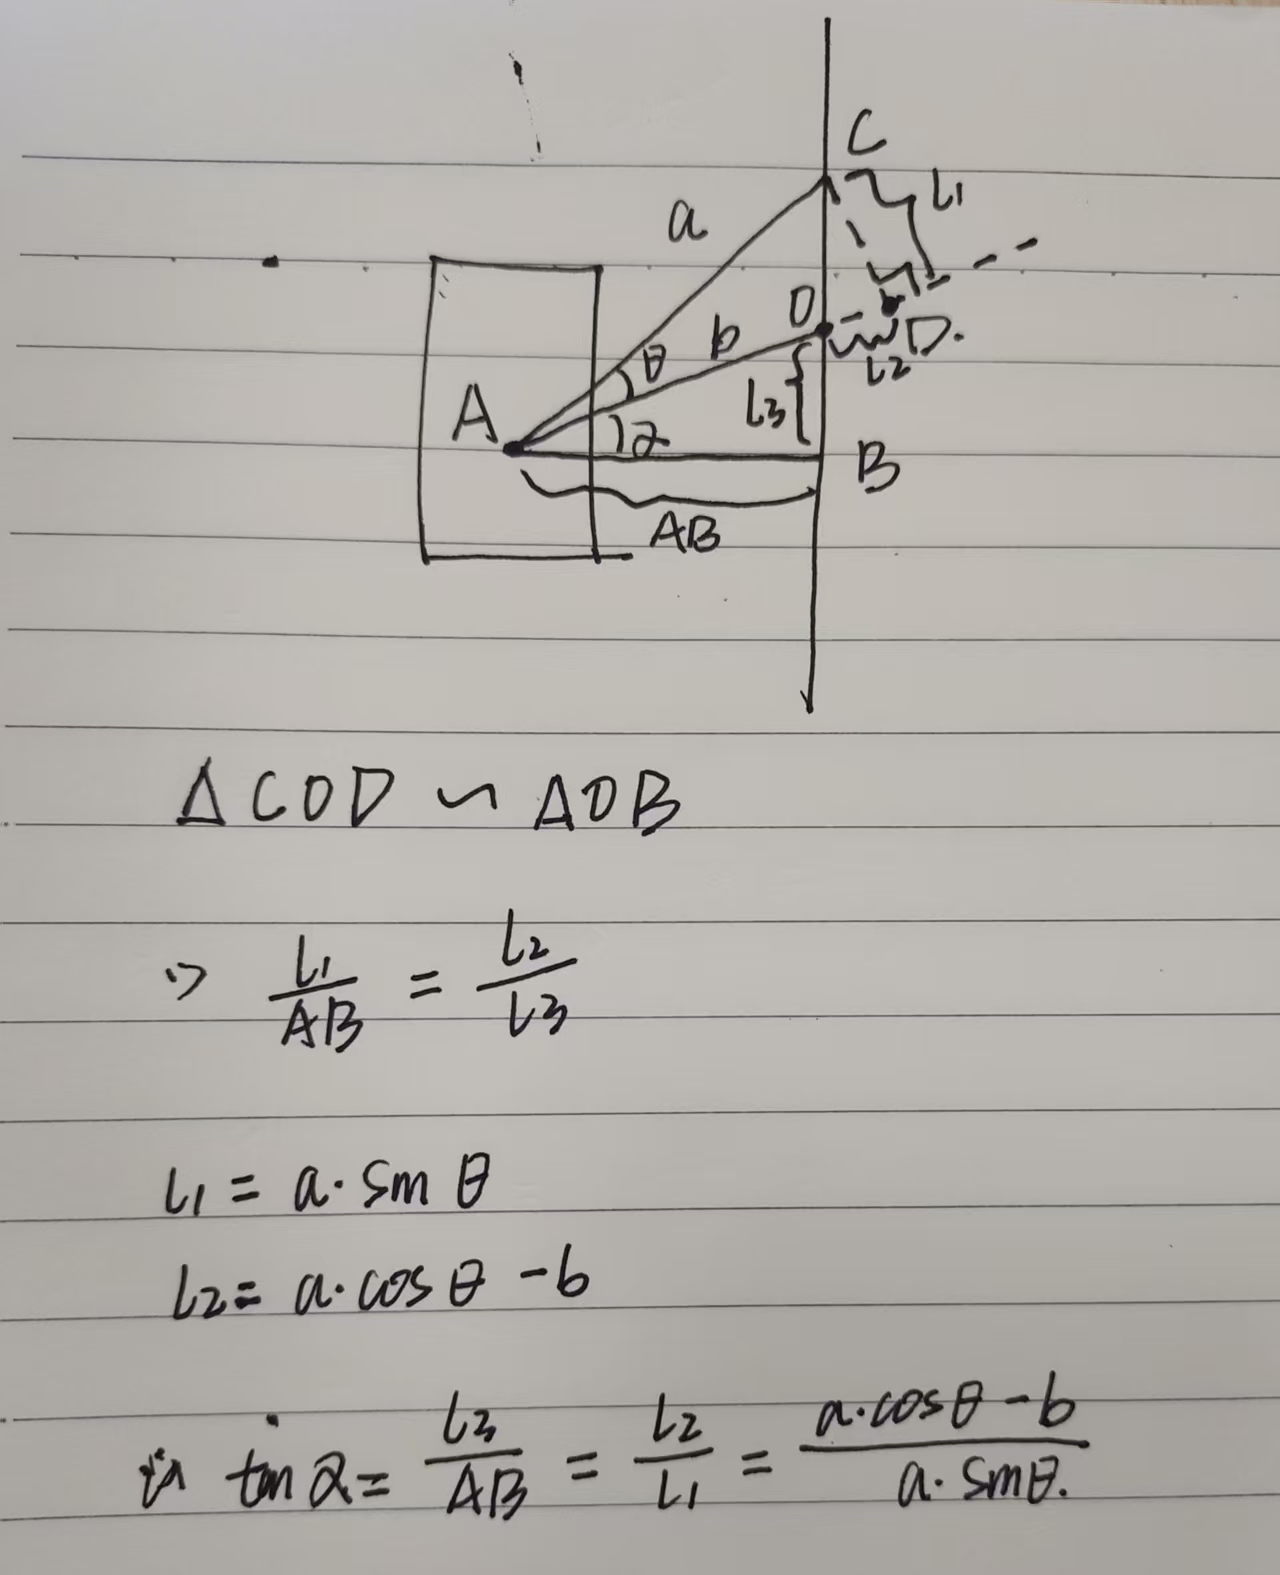 C
L1
a
O
D.
b
θ
L2
L3
A
α
B
AB
Δ COD ∽ AOB
∵ L1/AB = L2/L3
L1 = a · sin θ
L2 = a · cos θ - b
∴ tan α = L3/AB = L2/L1 = a · cos θ - b / a · sin θ.